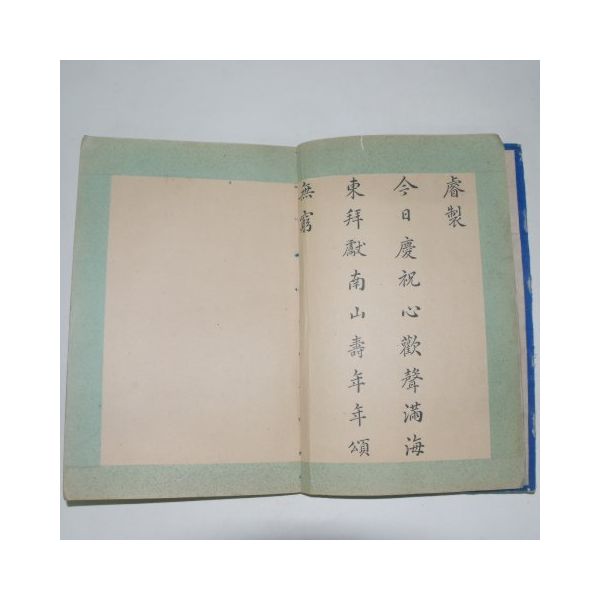 睿製
今日慶祝心歡聲滿海
東拜獻南山壽年年頌
無窮